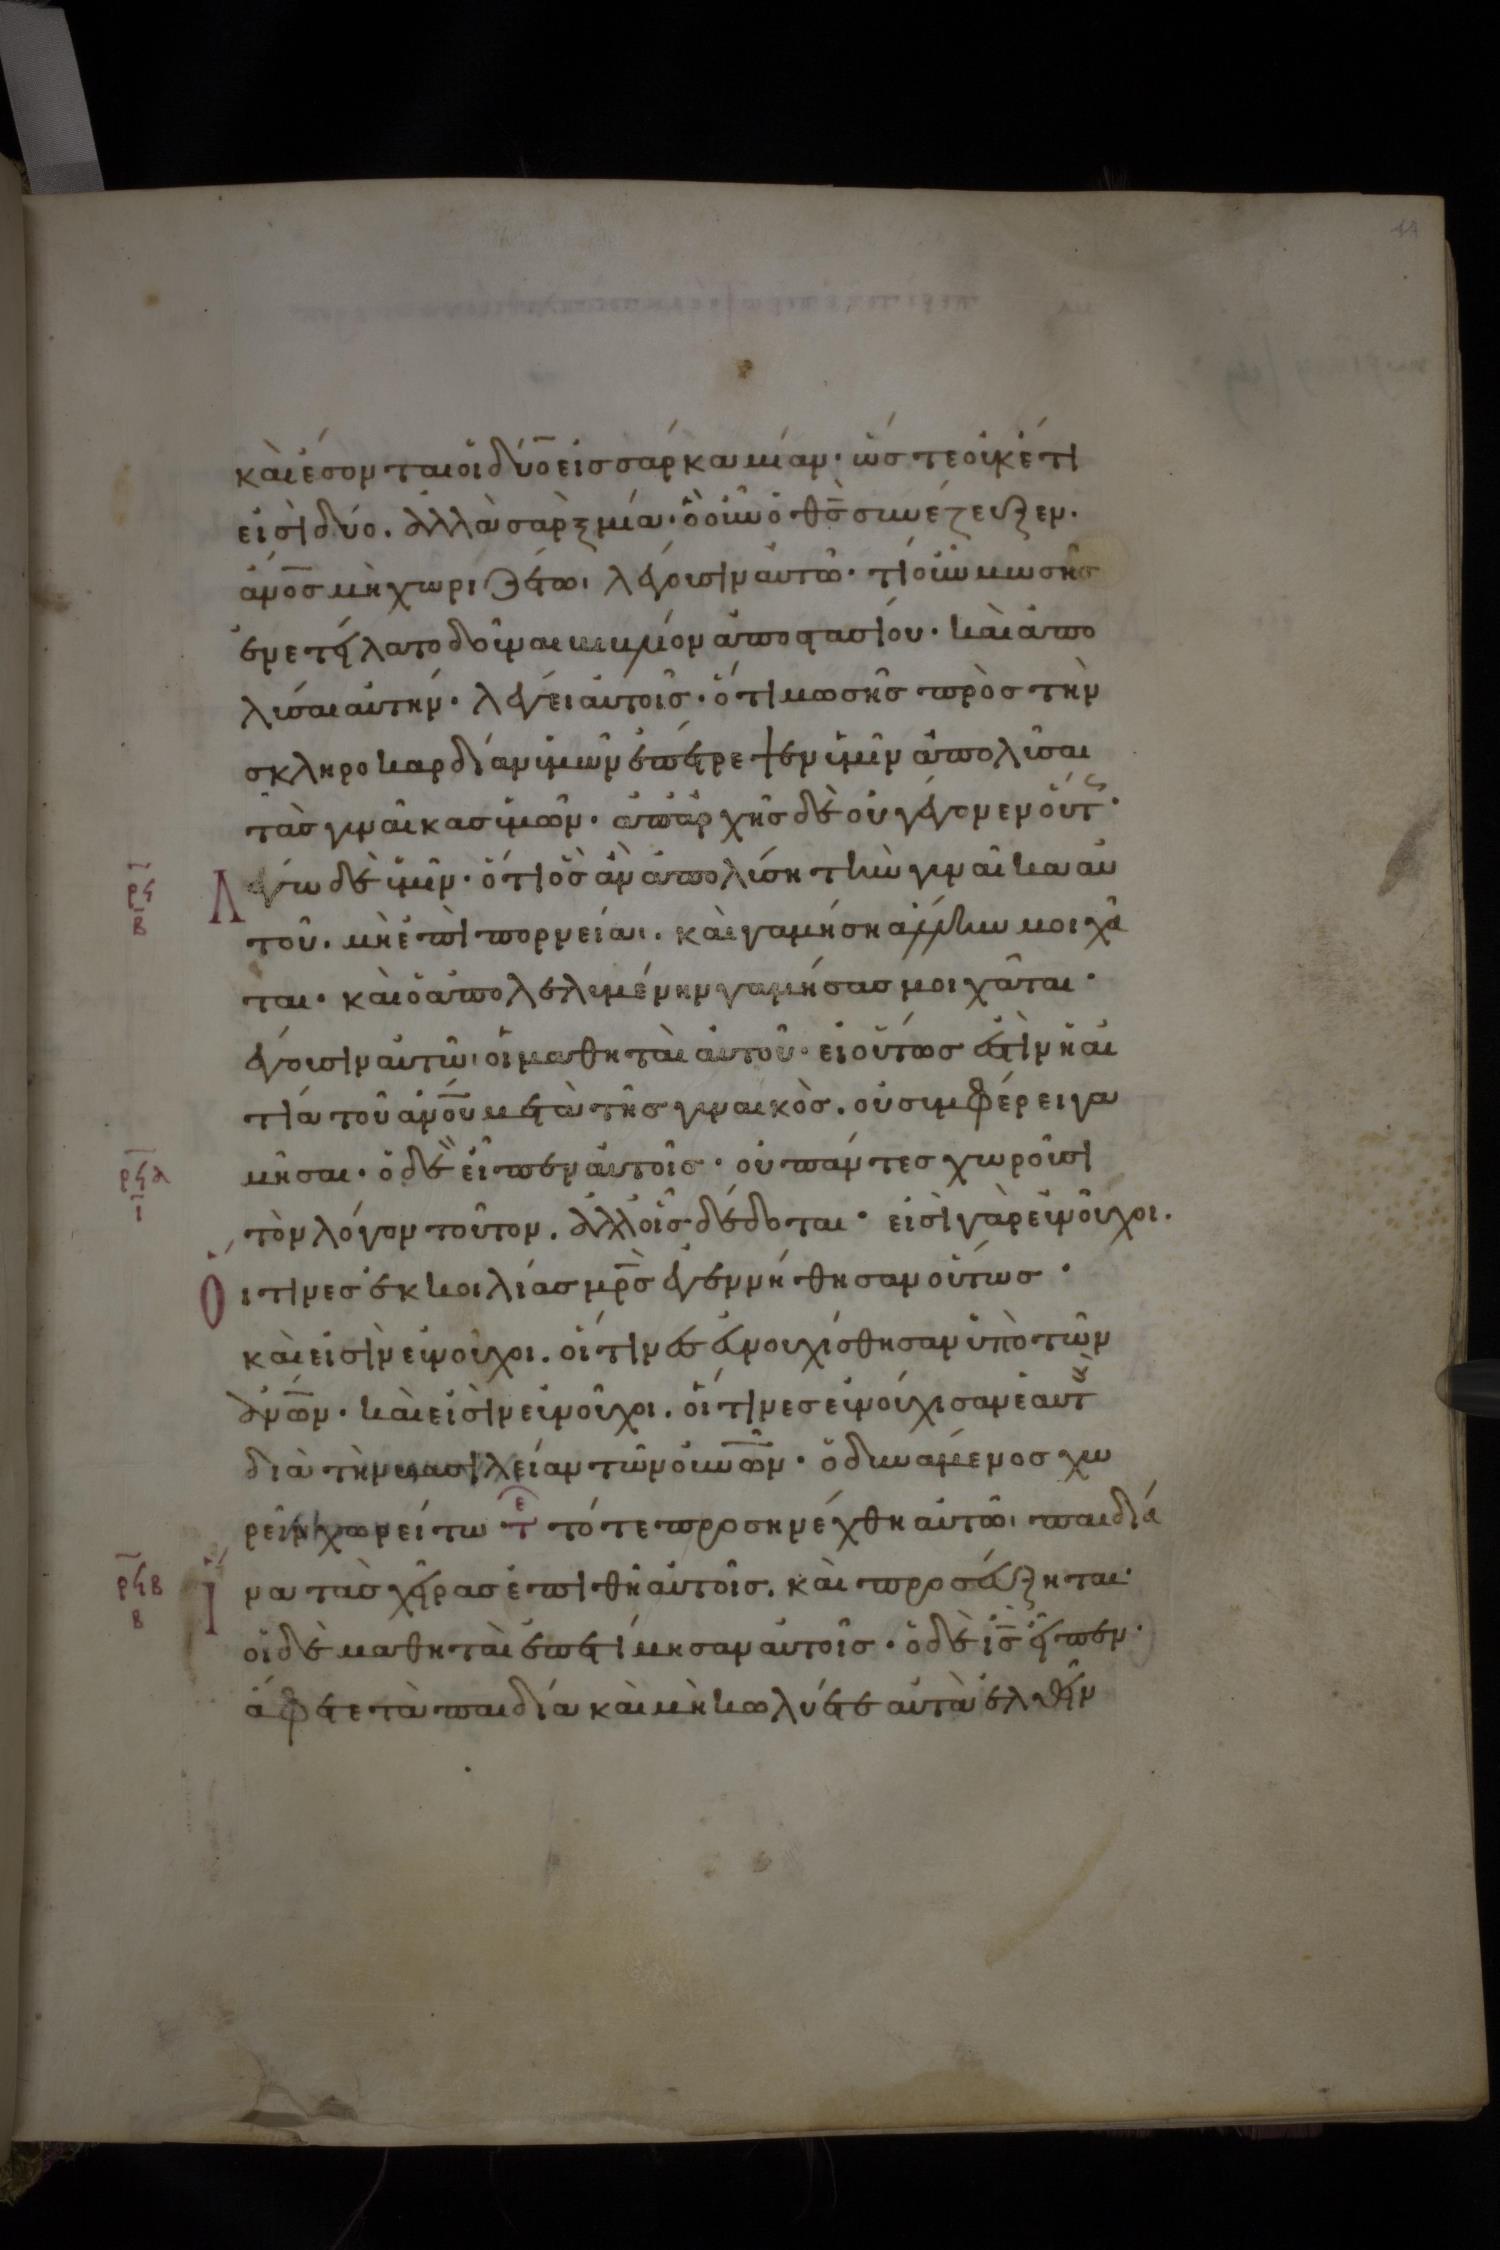 καὶ ἔσονται οἱ δύο εἰς σάρκα μίαν· ὥστε οὐκέτι
εἰσὶ δύο. ἀλλὰ σὰρξ μία· ὃ οὖν ὁ θ̅ς̅ συνέζευξεν·
ἄν̅ο̅ς̅ μὴ χωριζέτω· λέγουσιν αὐτῶ· τί οὖν μωσῆς
ἐνετείλατο δοῦναι βιβλίον ἀποστασίου· καὶ ἀπο
λύσαι αὐτήν· λέγει αὐτοῖς· ὅτι μωσῆς πρὸς τὴν
σκληροκαρδίαν ὑμῶν ἐπέτρεψεν ὑμῖν ἀπολῦσαι
τὰς γυναῖκας ὑμῶν· ἀπ' ἀρχῆς δὲ οὐ γέγονεν οὕτ(ως)·
Λέγω δὲ ὑμῖν· ὅτι ὃς ἂν ἀπολύση τὴν γυναῖκα αὐ
τοῦ. μὴ ἐπὶ πορνείαι. καὶ γαμήση ἄλλην μοιχᾶ
ται· καὶ ὁ ἀπολελυμένην γαμήσας μοιχᾶται·
λέγουσιν αὐτῶ οἱ μαθηταὶ αὐτοῦ· εἰ οὕτως ἐστὶν ἡ αἰ
τία τοῦ ἀν̅ο̅υ̅ μετὰ τῆς γυναικὸς. οὐ συμφέρει γα
μῆσαι· ὁ δὲ εἶπεν αὐτοῖς· οὐ πάντες χωροῦσι
τὸν λόγον τοῦτον. ἀλλ' οἷς δέδοται· εἰσὶ γὰρ εὐνοῦχοι.
Οἵτινες ἐκ κοιλίας μ̅ρ̅ς̅ ἐγεννήθησαν οὕτως·
καὶ εἰσὶν εὐνοῦχοι. οἵτινες εὐνουχίσθησαν ὑπὸ τῶν
ἀν̅ω̅ν̅· καὶ εἰσὶν εὐνοῦχοι. οἵτινες εὐνούχισαν ἑαυτ(οὺς)
διὰ τὴν βασιλείαν τῶν οὐν̅ω̅ν̅· ὁ δυνάμενος χω
ρεῖν χωρείτω τε τότε προσηνέχθη αὐτῶι παιδία
Ἵνα τὰς χεῖρας ἐπιθῆ αὐτοῖς. καὶ προσεύξηται·
οἱ δὲ μαθηταὶ ἐπετίμησαν αὐτοῖς· ὁ δὲ ι̅ς̅ εἶπεν·
ἄφετε τὰ παιδία καὶ μὴ κωλύετε αὐτὰ ἐλθεῖν
ρϟ
β
ρϟα
ι
ρϟβ
β